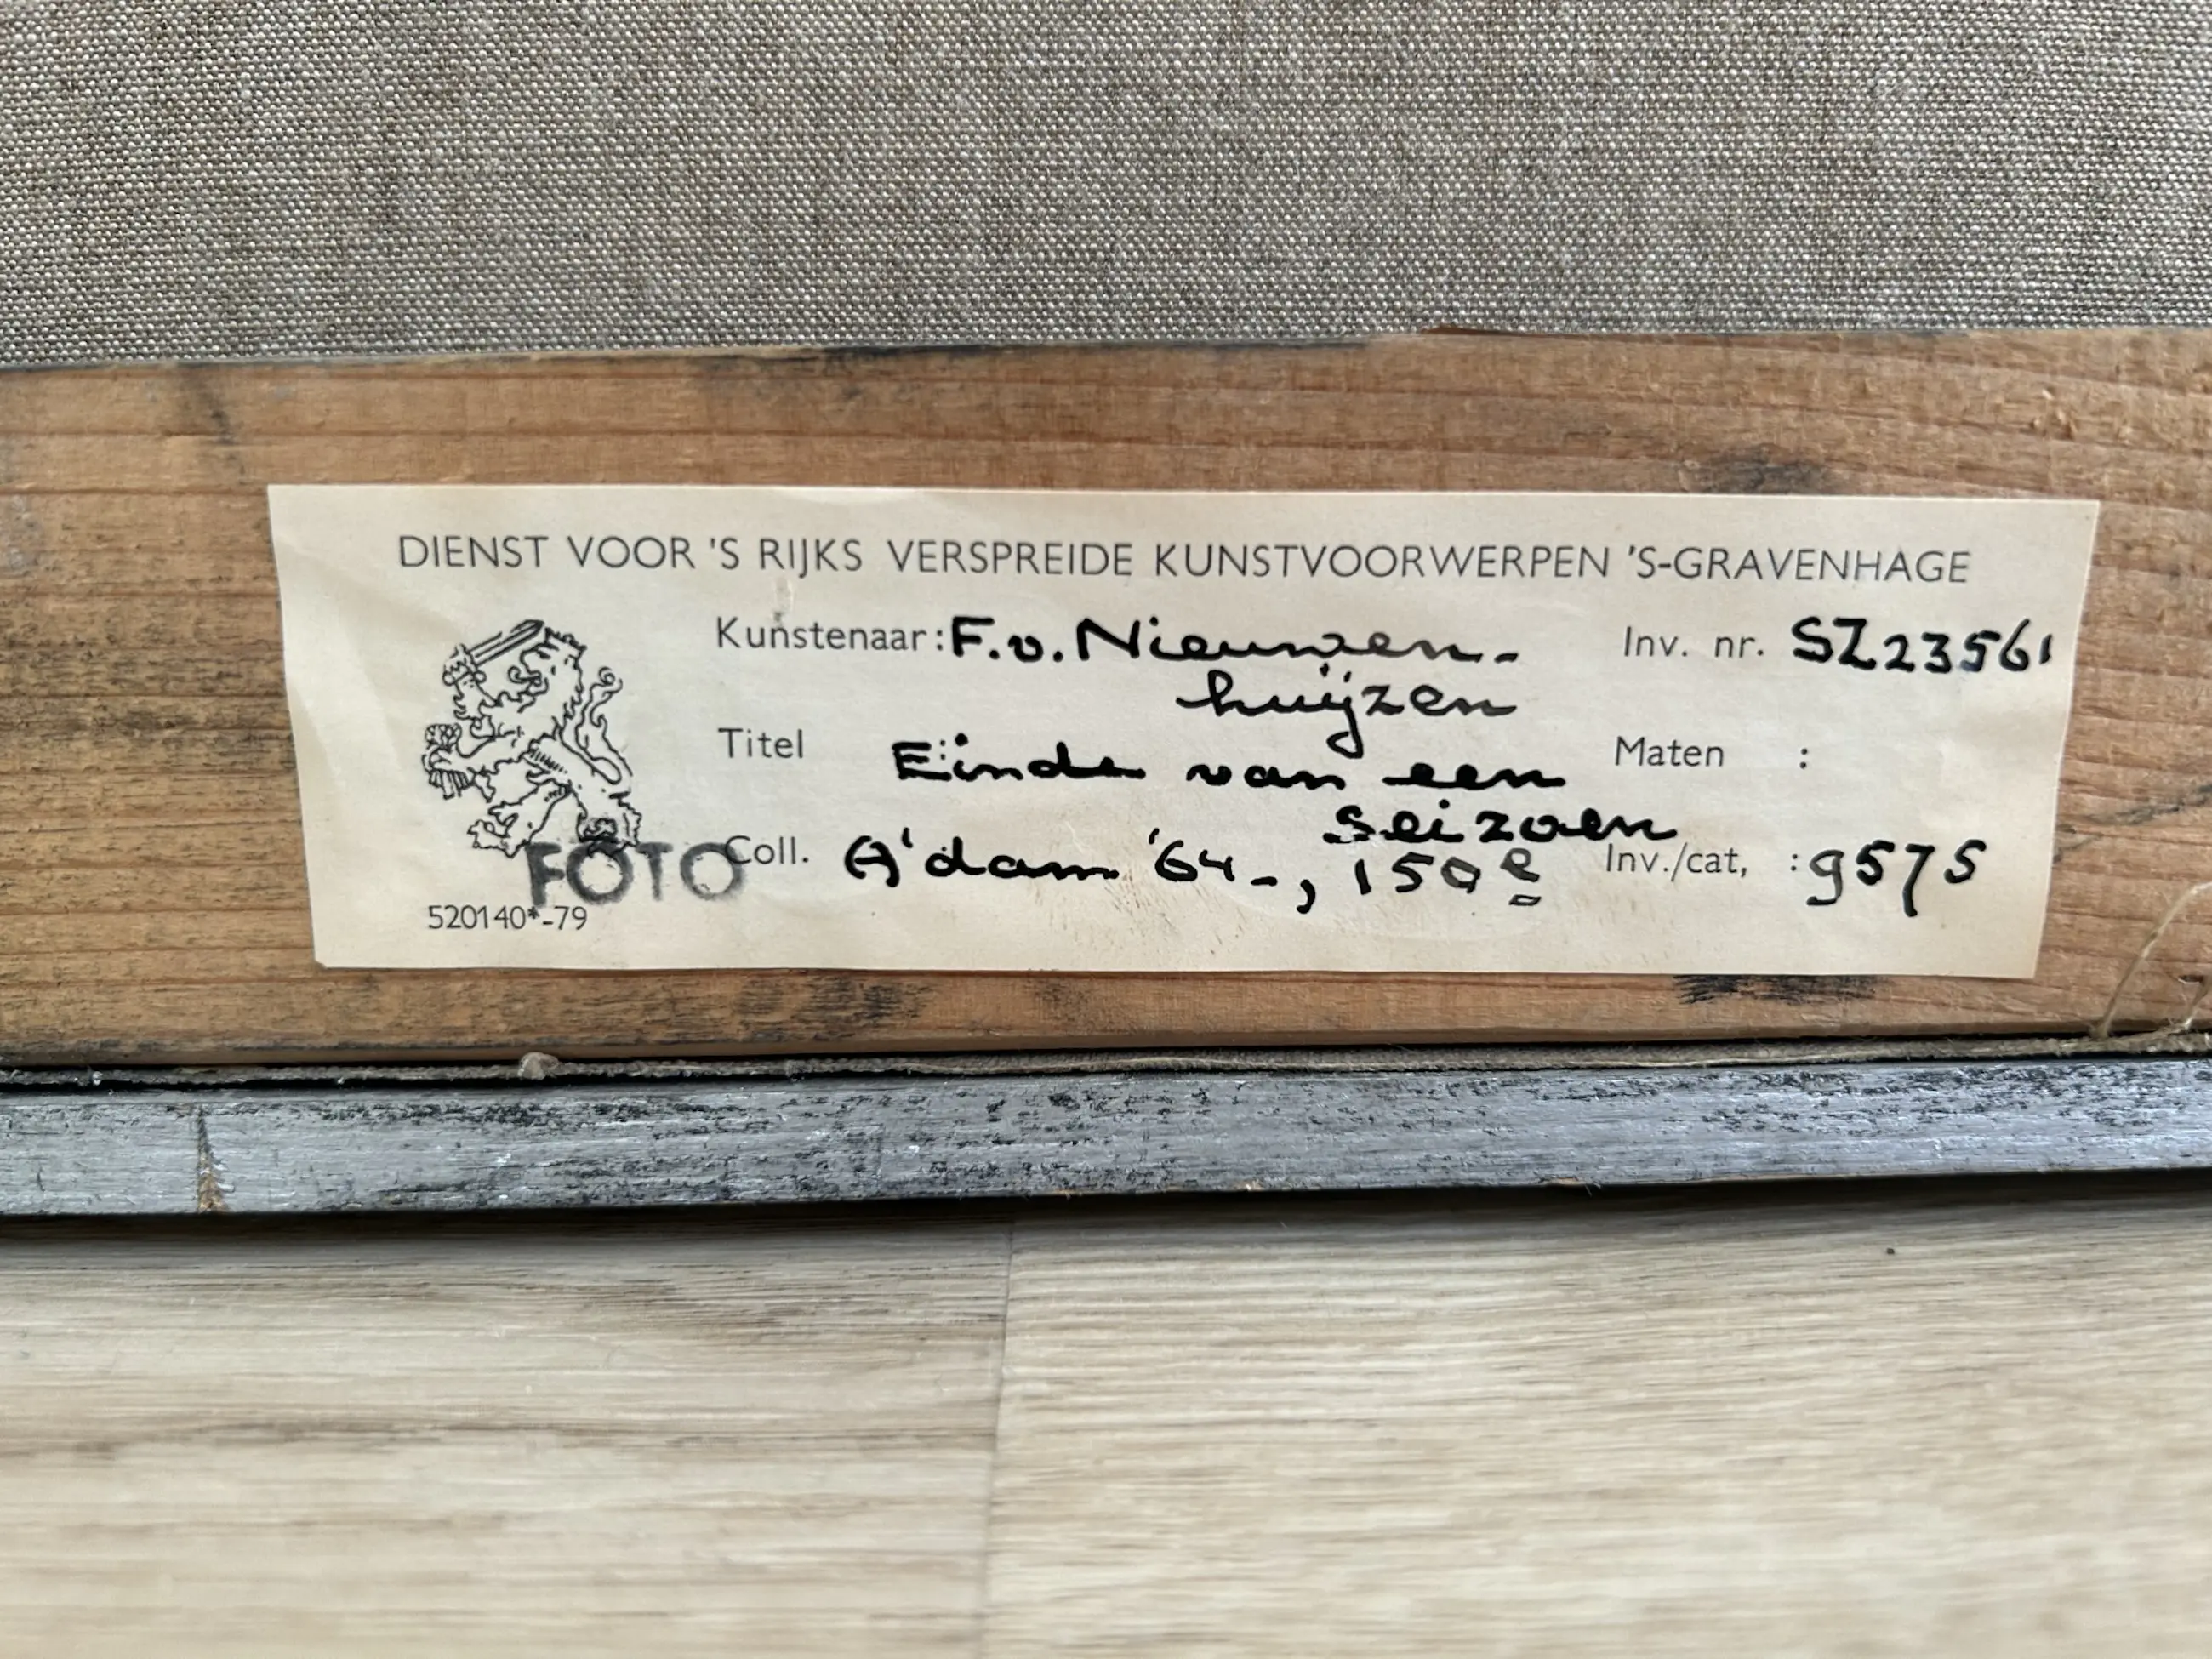 DIENST VOOR 'S RIJKS VERSPREIDE KUNSTVOORWERPEN 'S-GRAVENHAGE
Kunstenaar: F. v. Nieuwen-
huijzen
Inv. nr. SZ23561
Titel : Einde van een
seizoen
Maten :
Coll. A'dam '64-, 150 e
Inv./cat, : 9575
FOTO
520140*-79